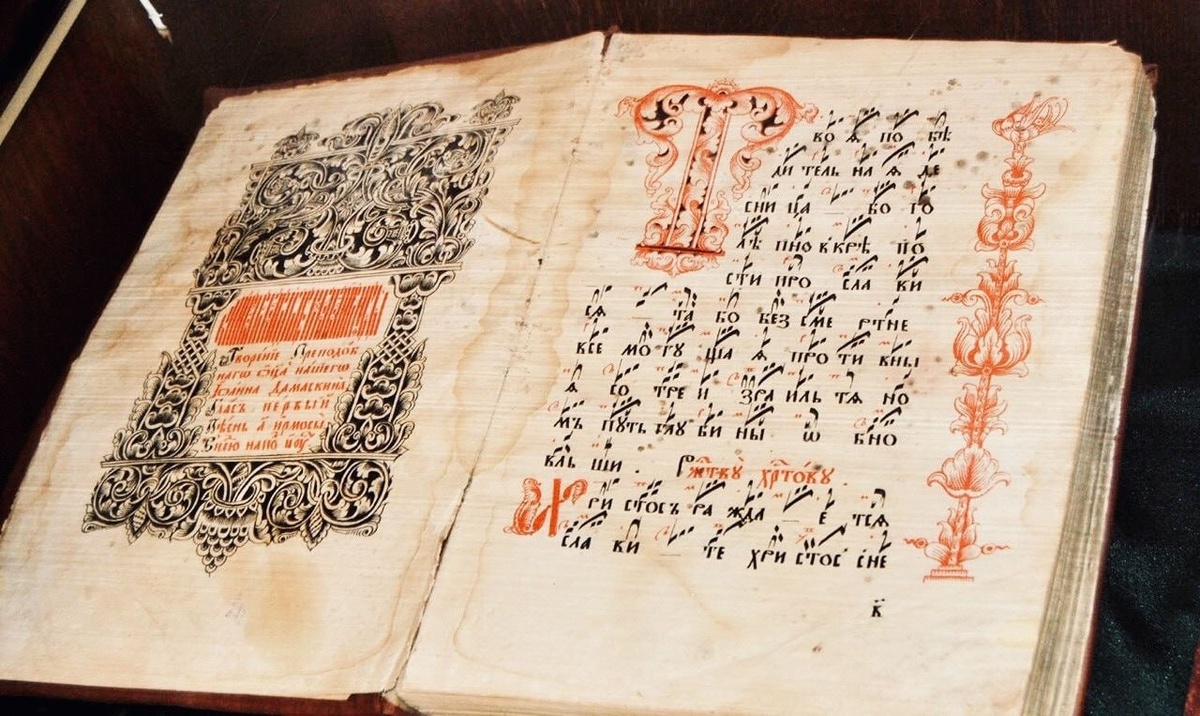 Творенїе Преподоб
нагѡ ѻц҃а нашегѡ
Іѡанна Дамаскина,
Гласъ первый
Пѣснь а҃ ирмосъ
Т во ѧ по бѣ
ди тель на ѧ де
сни ца бо го
лѣ пно в крѣ по
сти про сла ви
сѧ та бо без сме ртне
все мо гу ща ѧ про ти вны
ѧ со тре и зра иль тѧ но
мъ путь глу би ны ѡ бно
вль ши. Рж҃тву̀ хр҃то́ву
Х ри стосъ ра жда е тсѧ
сла ви те хри стос сне
к҃